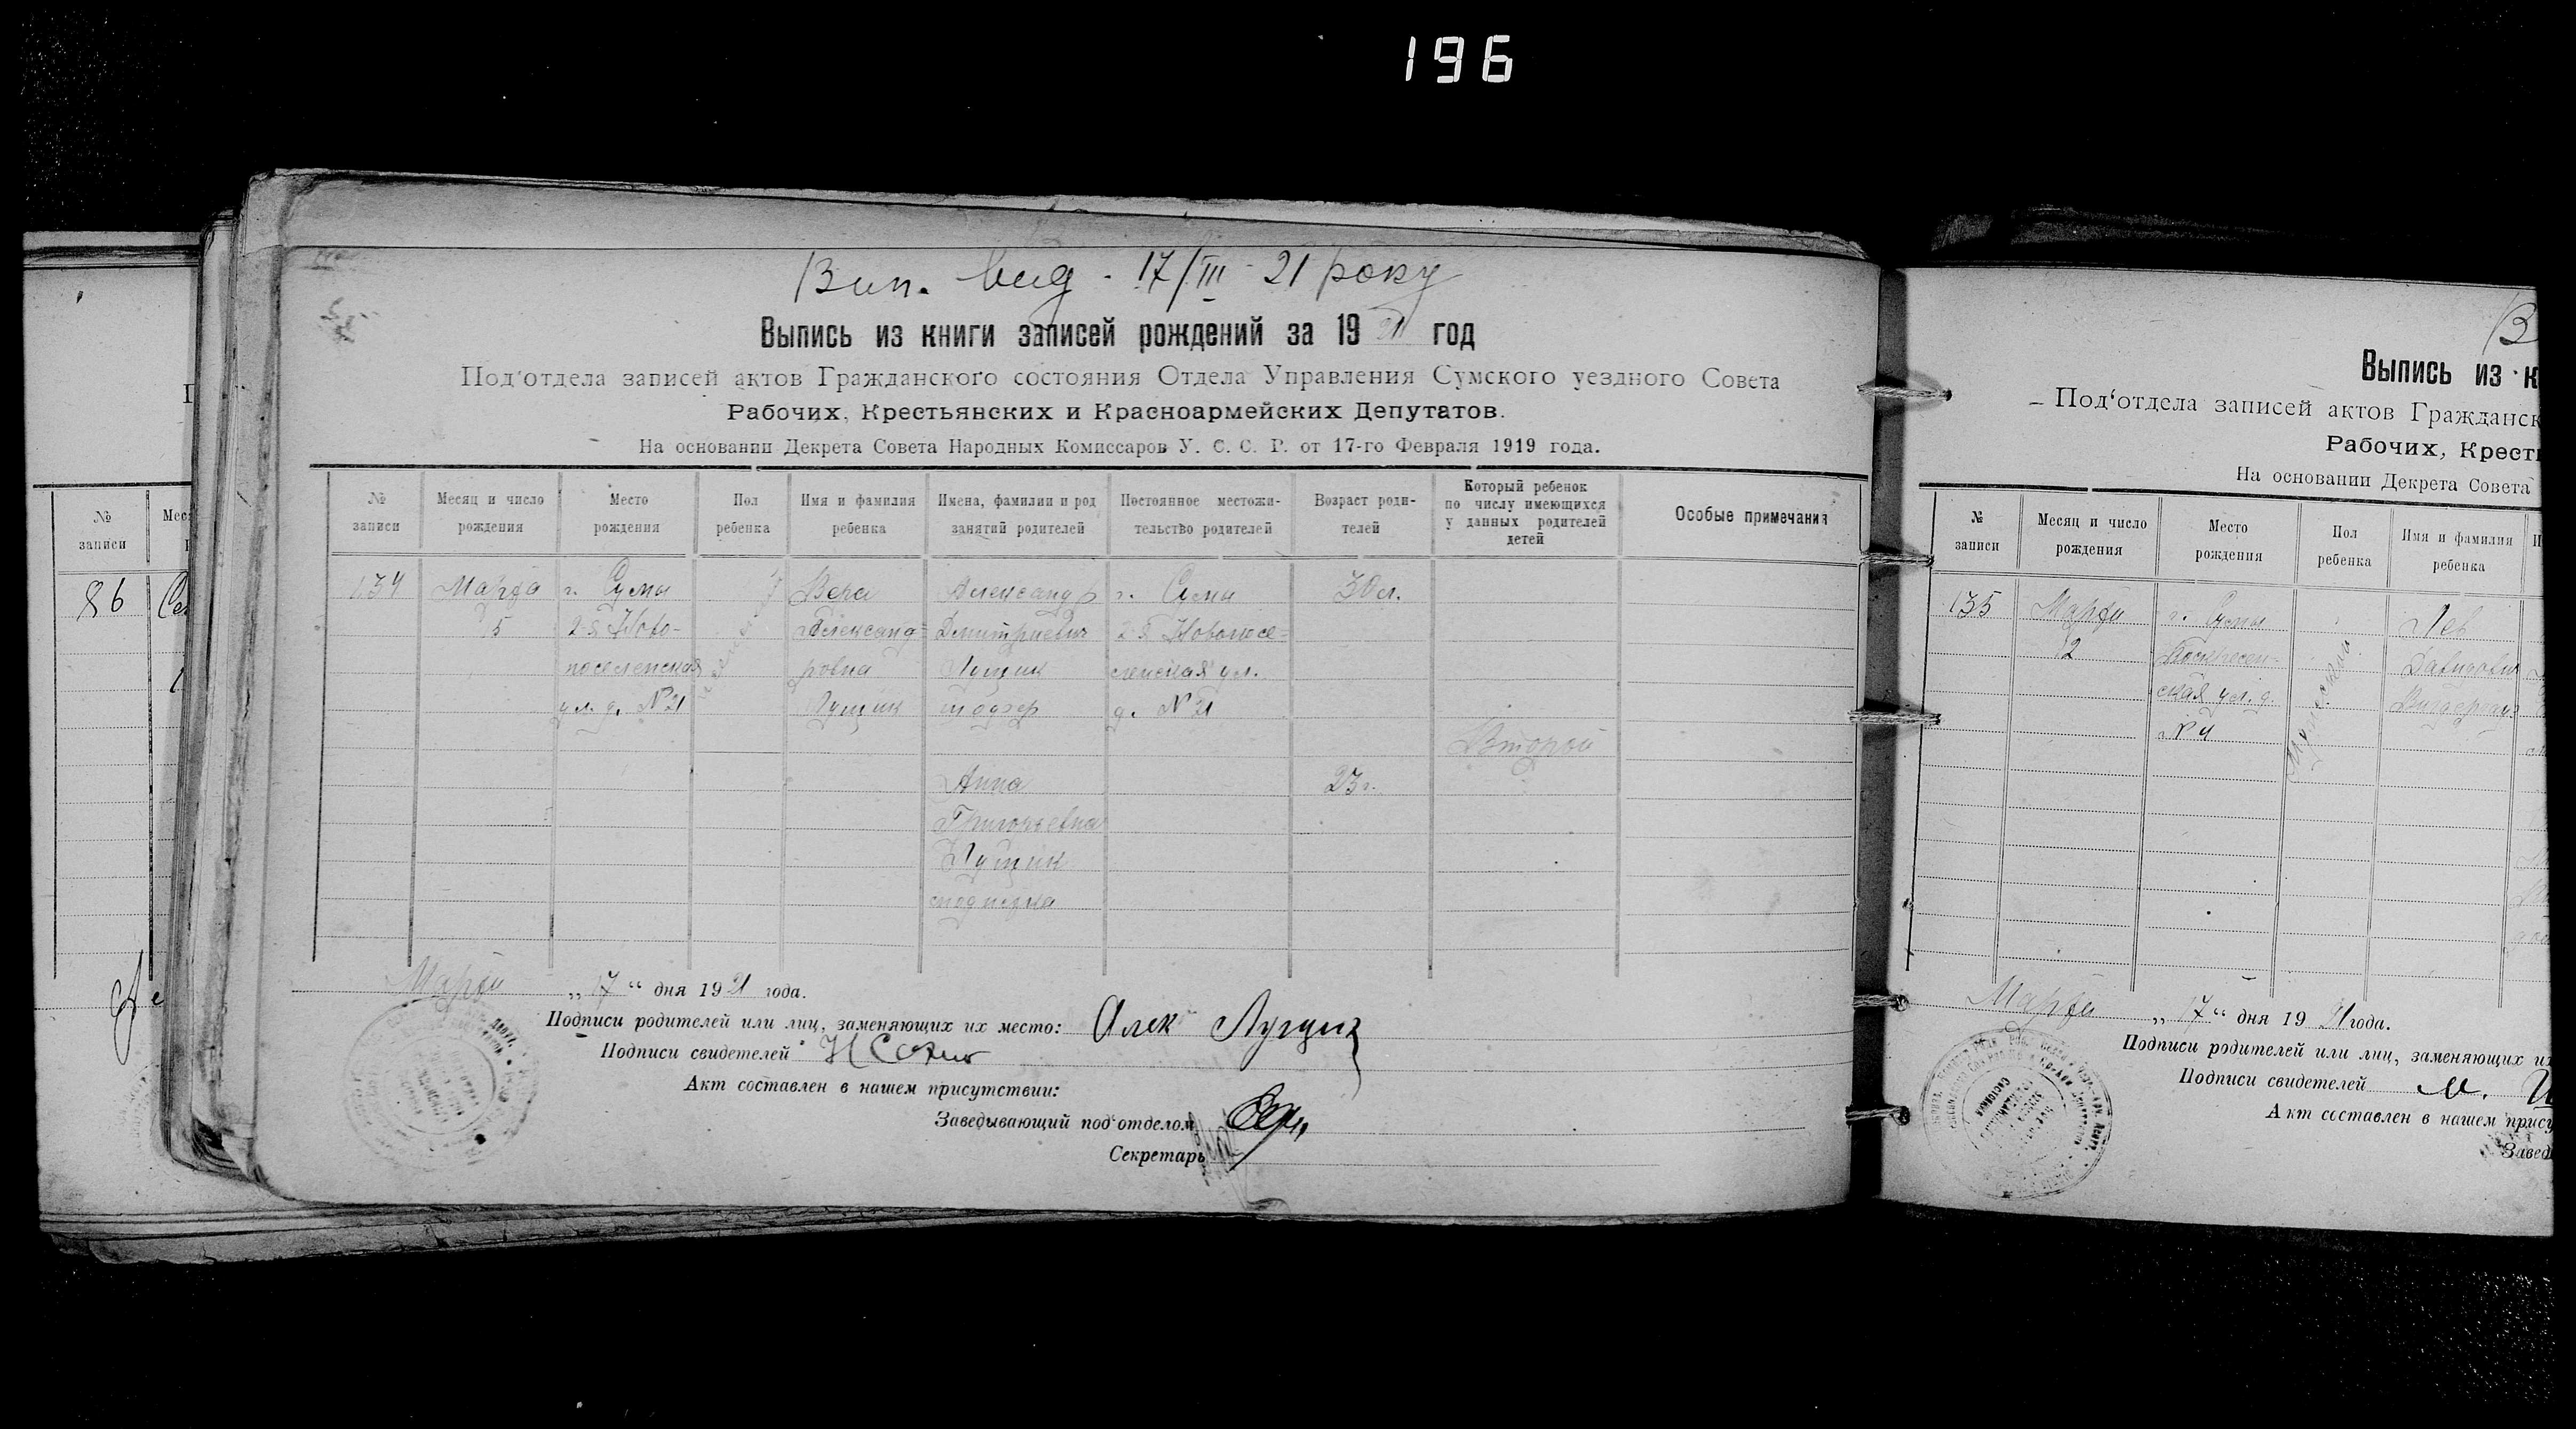 196
Вип. вид. 17/III 21 року
Выпись из книги записей рождений за 19 21 год
Под'отдела записей актов Гражданского состояния Отдела Управления Сумского уездного Совета
Рабочих, Крестьянских и Красноармейских Депутатов.
На основании Декрета Совета Народных Комиссаров У. С. С. Р. от 17-го Февраля 1919 года.
№ записи
Месяц и число рождения
Место рождения
Пол ребенка
Имя и фамилия ребенка
Имена, фамилии и род занятий родителей
Постоянное местожительство родителей
Возраст родителей
Который ребенок по числу имеющихся у данных родителей детей
Особые примечания
134
Марта
15
г. Сумы
2-я Ново-
поселенская
ул. д. № 21
Вера
Александ-
ровна
Лущик
Александр
Дмитриевич
Лущик
г. Сумы
2-я Новопосе-
ленская ул.
д. № 21
30 л.
Второй
Анна
Григорьевна
Лущик
23 г.
Марта „17“ дня 1921 года.
Подписи родителей или лиц, заменяющих их место: Алек Лущик
Подписи свидетелей
Акт составлен в нашем присутствии:
Заведывающий под'отделом
Секретарь
№
записи
Мес
86
В
Выпись из к
Под'отдела записей актов Гражданск
Рабочих, Крест
На основании Декрета Совета
№ записи
Месяц и число рождения
Место рождения
Пол ребенка
Имя и фамилия ребенка
135
Марта
12
г. Сумы
Воскресен-
ская ул. д.
№ 4
Мужской
Лев
Давидович
Марта „17“ дня 1921 года.
Подписи родителей или лиц, заменяющих их
Подписи свидетелей М.
Акт составлен в нашем прису
Завед